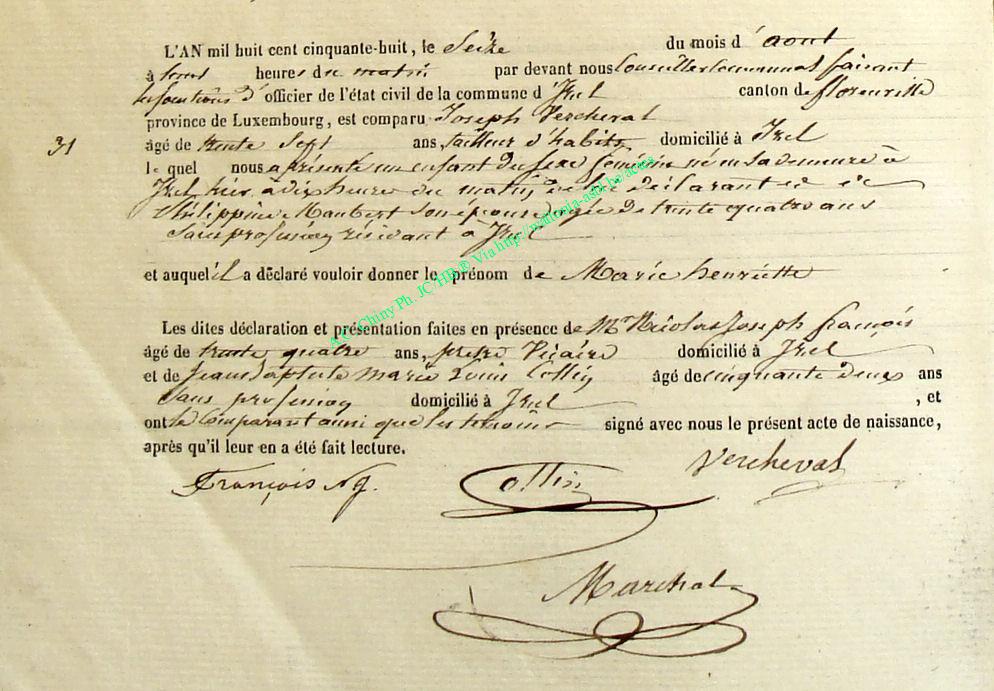 L'AN mil huit cent cinquante-huit, le Seize du mois d'aout
à heures du matin par devant nous Conseiller Communal faisant
les fonctions d'officier de l'état civil de la commune d'Izel canton de florenville
province de Luxembourg, est comparu Joseph Vercheval
31
âgé de trente Sept ans, tailleur d'habits domicilié à Izel
le quel nous a présenté un enfant du sexe féminin né en sa demeure à
Izel, hier, à dix heures du matin, de lui déclarant et de
Philippine Maubert son épouse âgée de trente quatre ans
Sans profession, résidant à Izel
et auquel il a déclaré vouloir donner le prénom de Marie henriette
Les dites déclaration et présentation faites en présence de Mr Nicolas Joseph françois
âgé de trente quatre ans, prêtre Vicaire domicilié à Izel
et de Jean Baptiste Marie Louis Collin âgé de cinquante deux ans
Sans profession domicilié à Izel , et
ont le Comparant ainsi que les témoins signé avec nous le présent acte de naissance,
après qu'il leur en a été fait lecture.
François Collin Vercheval
Marchal
A.C. Chiny Ph. JC HB ® Via http://